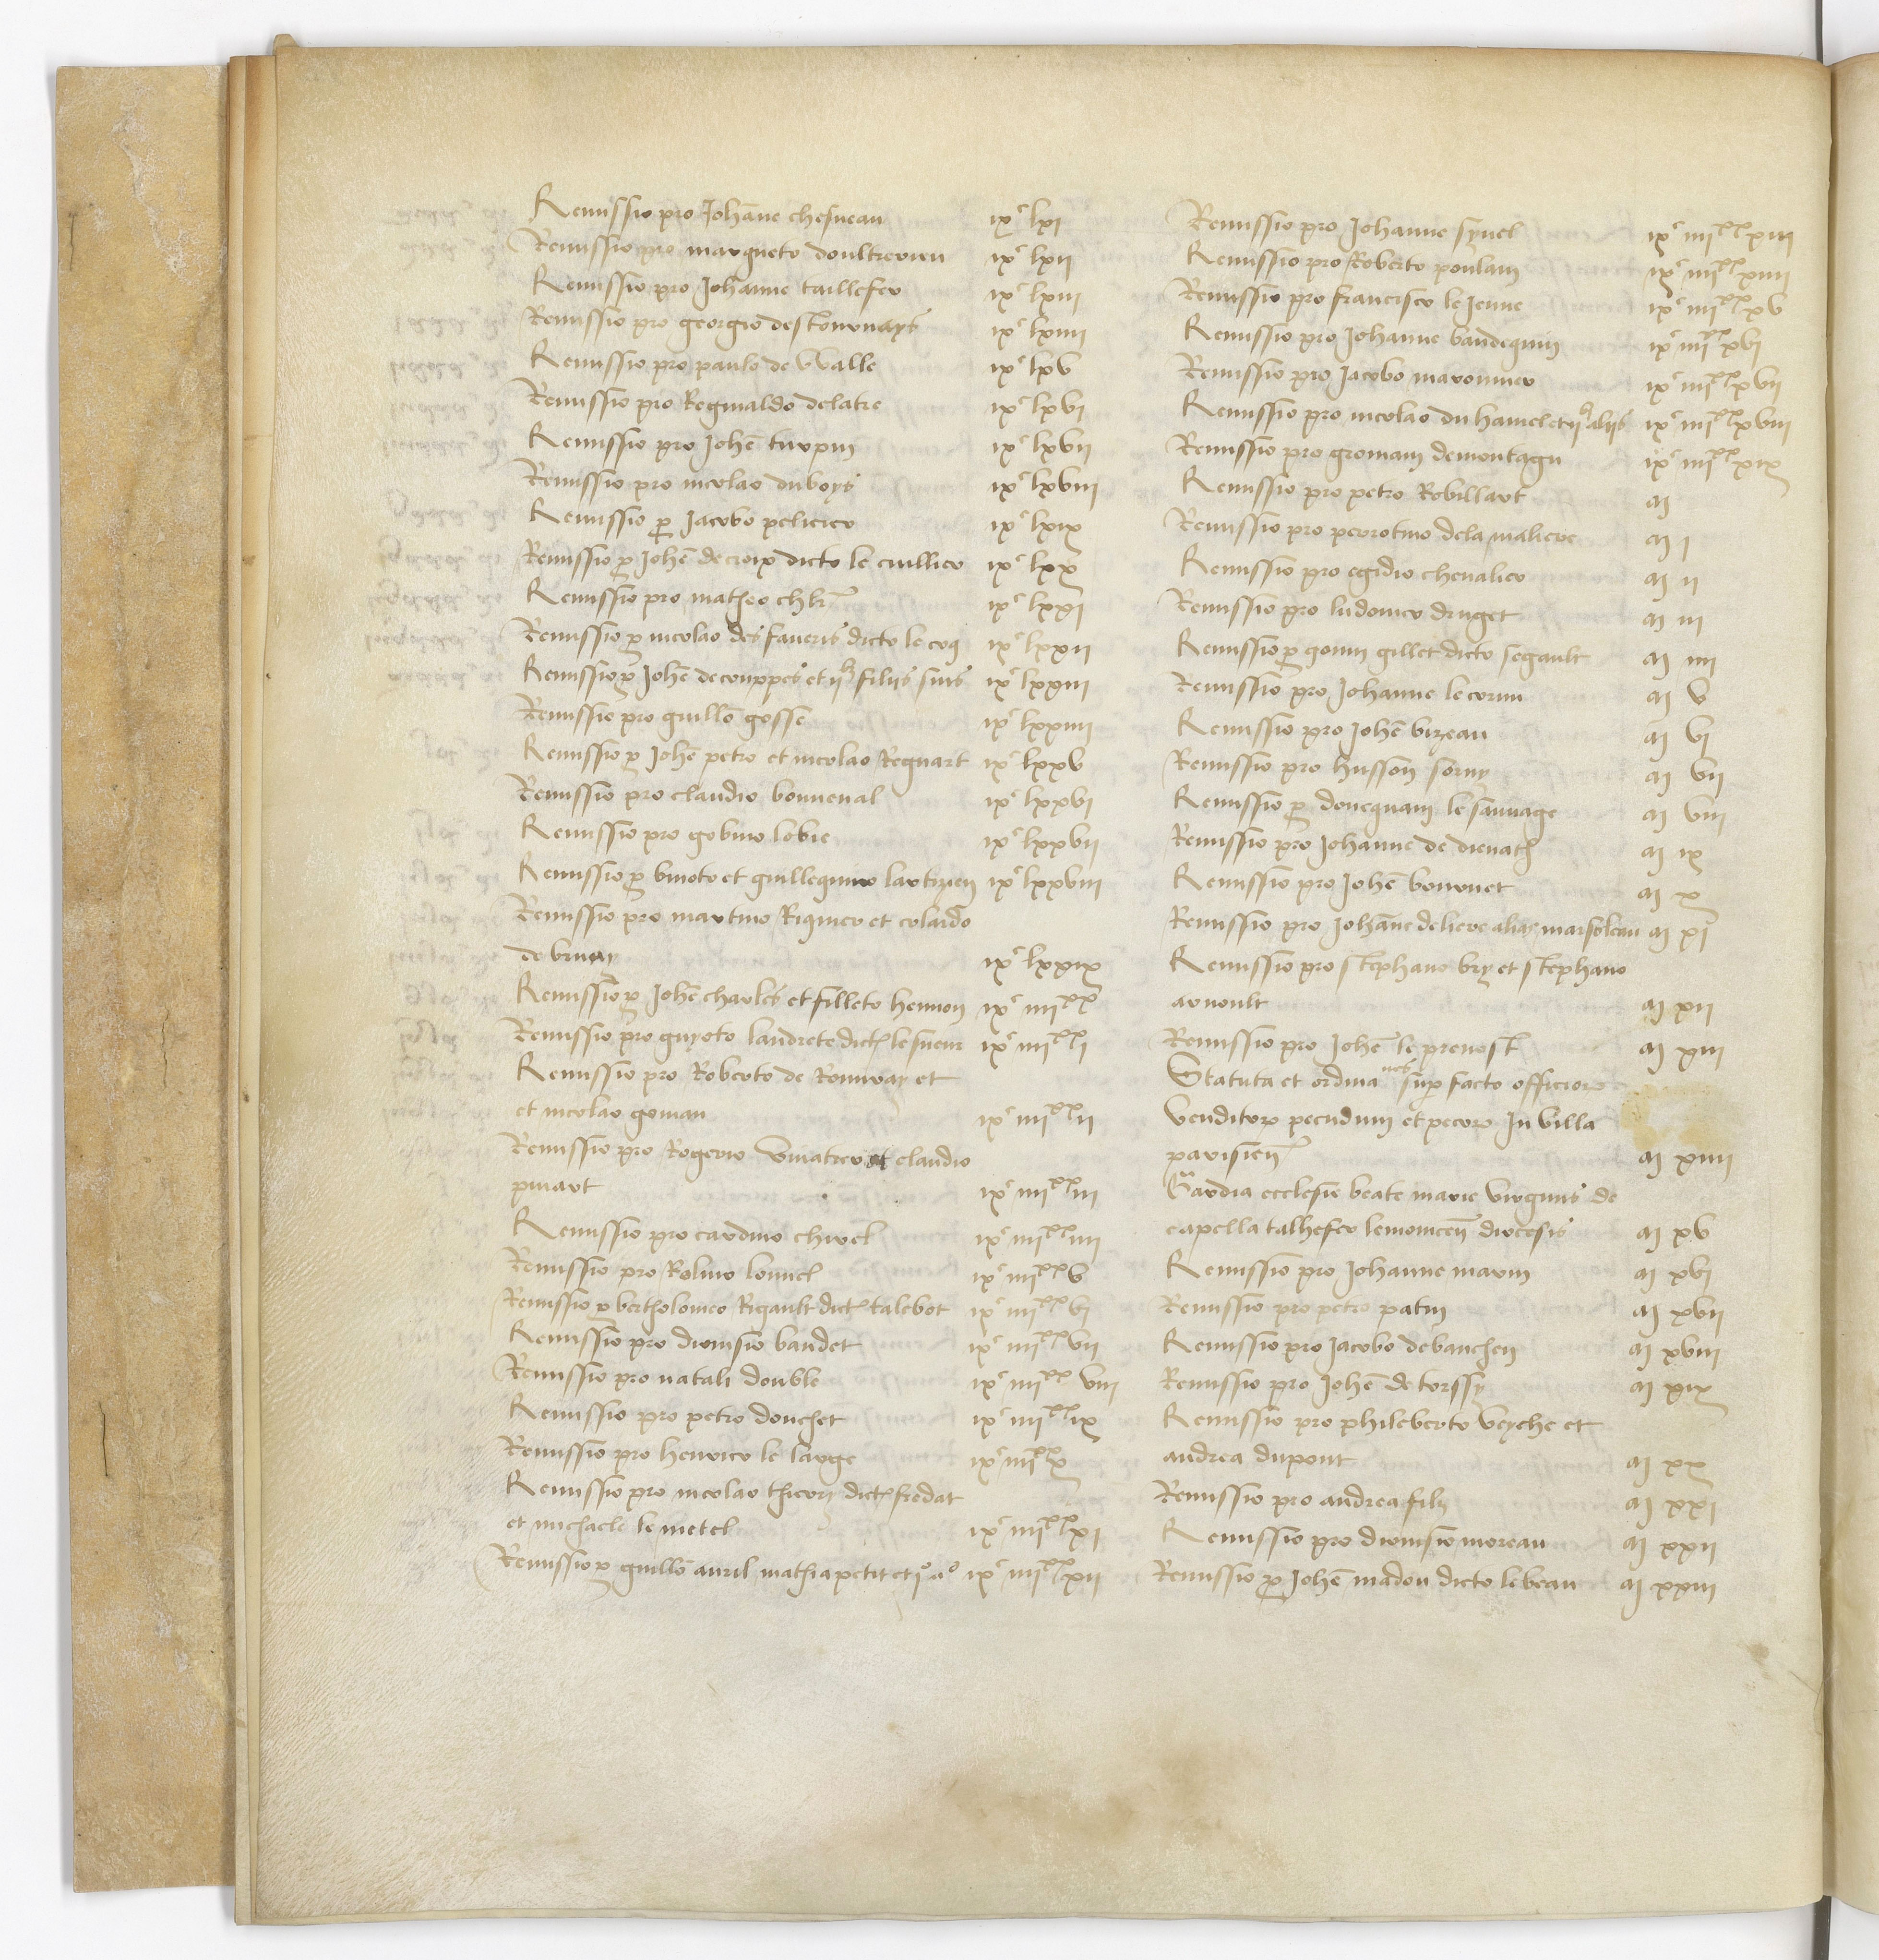 Remissio pro Johanne chesneau ixᶜ lxi
Remissio pro margueto doultrevieu ixᶜ lxii
Remissio pro Johanne taillefer ixᶜ lxiii
Remissio pro georgio destournays ixᶜ lxiiii
Remissio pro paulo de Walle ixᶜ lxv
Remissio pro Reginaldo delatre ixᶜ lxvi
Remissio pro Johẽ turpin ixᶜ lxvii
Remissio pro nicolao duboys ixᶜ lxviii
Remissio ꝓ Jacobo pelicier ixᶜ lxix
Remissio ꝓ Johẽ de croix dicto le cuillier ixᶜ lxx
Remissio pro matheo chlr̃ ixᶜ lxxi
Remissio ꝓ nicolao des faveris dicto le coq ixᶜ lxxii
Remissio ꝓ Johẽ de couppes et iiᵇᵘˢ filiis suis ixᶜ lxxiii
Remissio pro guillõ gosse ixᶜ lxxiiii
Remissio ꝓ Johẽ petro et nicolao Regnart ixᶜ lxxv
Remissio pro claudio bonneval ixᶜ lxxvi
Remissio pro gobino lobie ixᶜ lxxvii
Remissio ꝓ binoto et guillequino lartizien ixᶜ lxxviii
Remissio pro martino Riquier et colardo
de bruay ixᶜ lxxix
Remissio ꝓ Johẽ charles et filleto hennon ixᶜ iiiiˣˣ
Remissio pro guyoto landrete dict̃ lesueur ixᶜ iiiiˣˣ i
Remissio pro Roberto de Ronvray et
et nicolao goman ixᶜ iiiiˣˣ ii
Remissio pro Rogerio Vinatier et claudio
pinart ixᶜ iiiiˣˣ iii
Remissio pro cardino chirel ixᶜ iiiiˣˣ iiii
Remissio pro Rolino lounel ixᶜ iiiiˣˣ v
Remissio ꝓ bertholomeo Rigault dict̃ talebot ixᶜ iiiiˣˣ vi
Remissio pro dionisio baudet ixᶜ iiiiˣˣ vii
Remissio pro natali double ixᶜ iiiiˣˣ viii
Remissio pro petro douchet ixᶜ iiiiˣˣ ix
Remissio pro henrico le large ixᶜ iiiiˣˣ x
Remissio pro nicolao thiery dict̃ fredat
et michaele le metel ixᶜ iiiiˣˣ xi
Remissio ꝓ guillõ auril mathia petit et iᵒ aᵒ ixᶜ iiiiˣˣ xii
Remissio pro Johanne synel ixᶜ iiiiˣˣ xiii
Remissio pro Roberto poulain ixᶜ iiiiˣˣ xiiii
Remissio pro francisco le Jeune ixᶜ iiiiˣˣ xv
Remissio pro Johanne baudequin ixᶜ iiiiˣˣ xvi
Remissio pro Jacobo maronnier ixᶜ iiiiˣˣ xvii
Remissio pro nicolao du hamel et iiᵇᵘˢ aliis ixᶜ iiiiˣˣ xviii
Remissio pro gromain demontagu ixᶜ iiiiˣˣ xix
Remissio pro petro Robillart m
Remissio pro perrotino dela maliere m i
Remissio pro egidio chevalier m ii
Remissio pro ludovico druget m iii
Remissio ꝓ gonin gillet dicto segault m iiii
Remissio pro Johanne lecorin m v
Remissio pro Johẽ bizeau m vi
Remissio pro husson sorny m vii
Remissio ꝓ donequam le sauvage m viii
Remissio pro Johanne de dienath m ix
Remissio pro Johẽ bonnet m x
Remissio pro Johãne deliere alias marsoleau m xi
Remissio pro stephano bry et stephano
arnoult m xii
Remissio pro Johẽ le prevost m xiii
Statuta et ordinaⁿᵉˢ suꝑ facto officioꝝ
Venditoꝝ pecudum et pecoꝝ In villa
parisien̄ m xiiii
Gardia ecclesie beate marie virginis de
capella talhefer lemovicen̄ diocesis m xv
Remissio pro Johanne marin m xvi
Remissio pro petro patin m xvii
Remissio pro Jacobo debauchen m xviii
Remissio pro Johẽ de torssy m xix
Remissio pro phileberto veyche et
andrea dupont m xx
Remissio pro andrea filz m xxi
Remissio pro dionisio moreau m xxii
Remissio ꝓ Johẽ madou dicto lebeau m xxiii